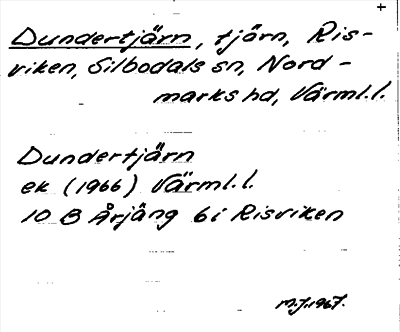 Dundertjärn, tjärn, Ris-
viken, Silbodals sn, Nord-
marks hd, Värml.l.
Dundertjärn
ek (1966) Värml.l.
10 B Årjäng 6i Risviken
M.J.1967.